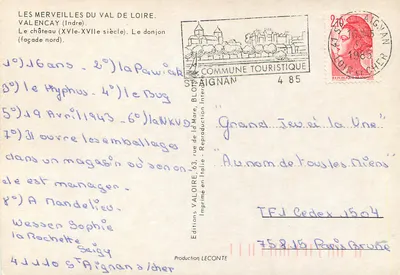 LES MERVEILLES DU VAL DE LOIRE.
VALENCAY (Indre).
Le château (XVIe-XVIIe siècle). Le donjon
(façade nord).
COMMUNE TOURISTIQUE
ST-AIGNAN 4 85
2,10
1°) 16 ans - 2°) la
3°) le Typhus - 4°) le Bug
5°) 19 Avril 1943 - 6°) la NKVD
7°) Il ouvre les emballages
dans un magasin où son on
cle est manager.
8°) A Mandelieu
Wessen Sophie
la Rochette
Seigy
41110 St Aignan s/cher
Editions VALOIRE, 63, rue de la Mare, BLOIS
Imprimé en Italie - Reproduction Interdite
"Grand Jeu à la Une"
"Au nom de tous les Miens"
TF1 Cedex 1504
75815 Paris Brune
Production LECONTE